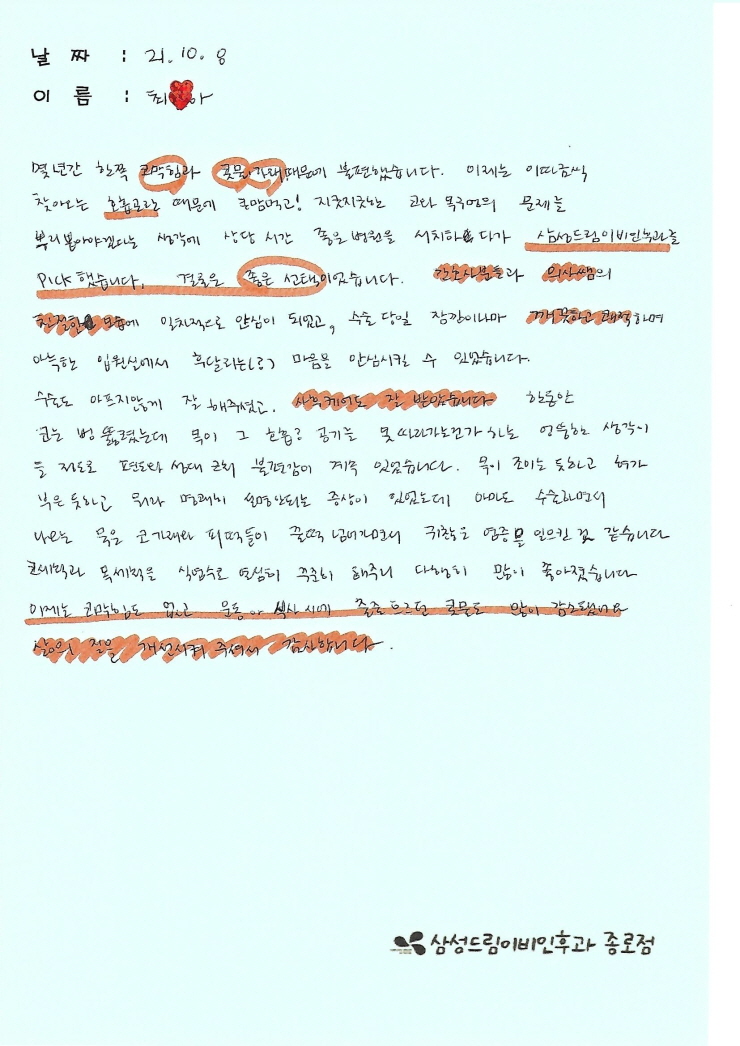 날 짜 : 21. 10. 8
이 름 : 최 아
몇 년간 한쪽 코막힘과 콧물, 가래 때문에 불편했습니다. 이제는 이따금씩
찾아오는 호흡곤란 때문에 큰맘먹고! 지긋지긋한 코와 목구멍의 문제를
뿌리 뽑아야겠다는 생각에 상당 시간 좋은 병원을 서치하다가 삼성드림이비인후과를
Pick 했습니다. 결론은 좋은 선택이었습니다. 간호사분들과 의사쌤의
친절한 모습에 일차적으로 안심이 되었고, 수술 당일 잠깐이나마 깨끗하고 쾌적하며
아늑한 입원실에서 후달리는(?) 마음을 안심시킬 수 있었습니다.
수술도 아프지않게 잘 해주셨고. 사후케어도 잘 받았습니다 한동안
코는 뻥 뚫렸는데 목이 그 호흡? 공기를 못 따라가는건가 하는 엉뚱한 생각이
들 정도로 편도와 성대 근처 불편감이 계속 있었습니다. 목이 조이는 듯하고 혀가
부은 듯하고 뭐라 명쾌히 설명안되는 증상이 있었는데 아마도 수술하면서
나온 묵은 코가래와 피떡들이 꿀떡 넘어가면서 염증을 일으킨 것 같습니다
코세척과 목세척을 식염수로 열심히 꾸준히 해주니 다행히 많이 좋아졌습니다
이제는 코막힘도 없고 운동 or 식사 시에 줄줄 흐르던 콧물도 많이 감소됐어요
삶의 질을 개선시켜 주셔서 감사합니다.
삼성드림이비인후과 종로점